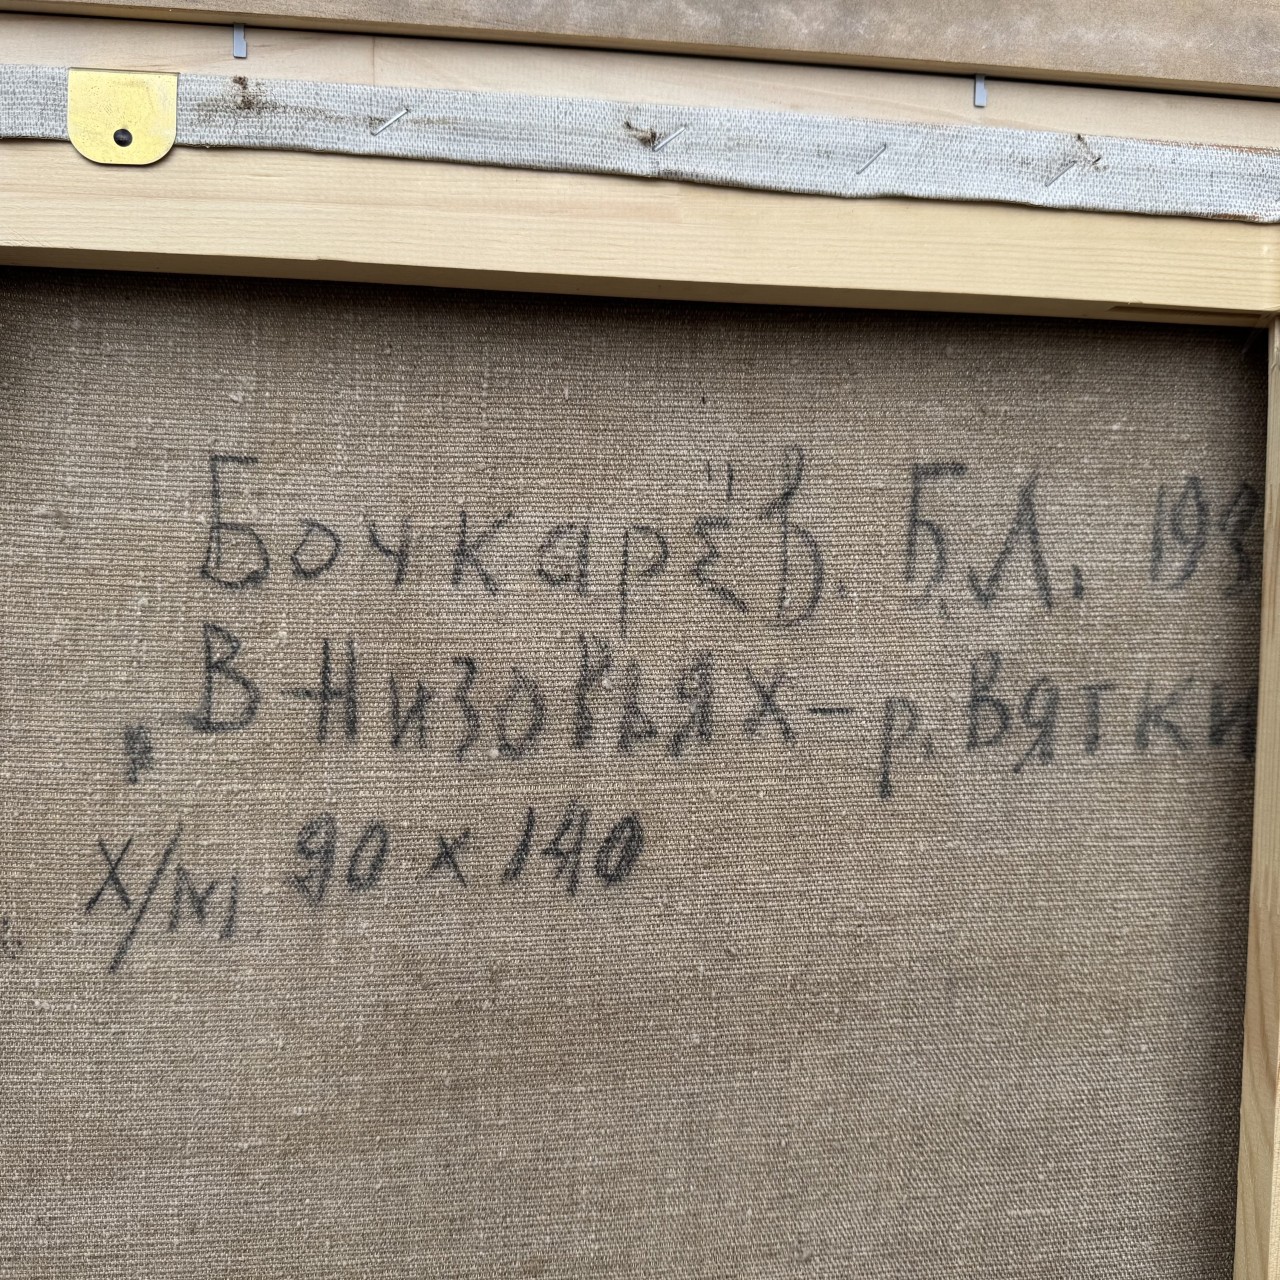 Бочкарёв. Б.Л. 193
„В Низовьях - р. Вятки
х/м 90 х 140